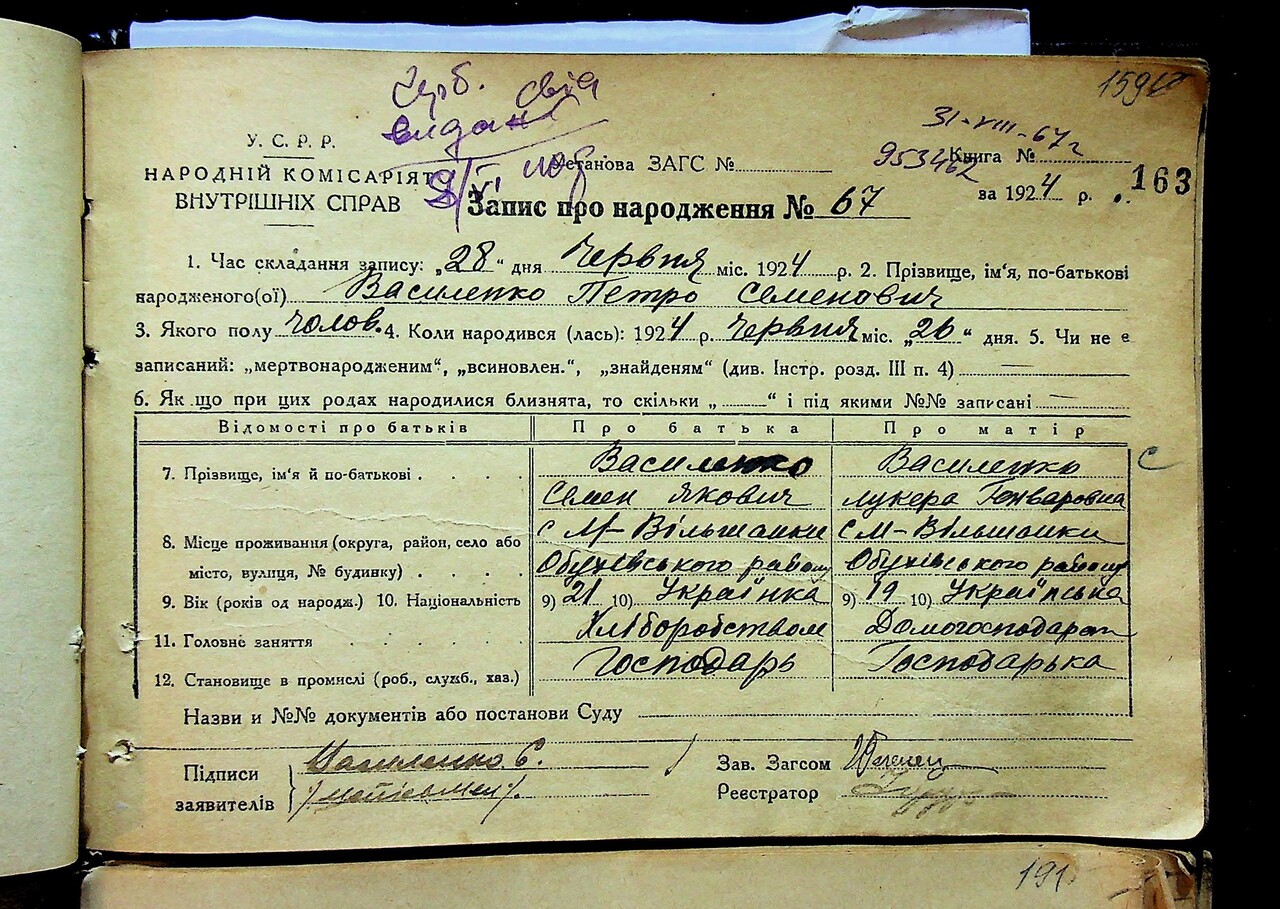 1591
видано
31-VIII-67 г
953462
У. С. Р. Р.
НАРОДНІЙ КОМІСАРІЯТ
ВНУТРІШНІХ СПРАВ
Установа ЗАГС №
Книга №
за 1924 р.
163
Запис про народження № 67
1. Час складання запису: „28" дня Червня міс. 1924 р. 2. Прізвище, ім'я, по-батькові
народженого(ої) Василенко Петро Семенович
3. Якого полу чолов. 4. Коли народився (лась): 1924 р. Червня міс. „26" дня. 5. Чи не є
записаний: „мертвонародженим", „всиновлен.", „знайденям" (див. Інстр. розд. III п. 4)
6. Як що при цих родах народилися близнята, то скільки „ " і під якими №№ записані
Відомості про батьків Про батька Про матір
7. Прізвище, ім'я й по-батькові Василенко Василенко С
Семен Якович лукера
8. Місце проживання (округа, район, село або с М-Вільшанки с М-Вільшанки
місто, вулиця, № будинку) Обухівського району Обухівского району
9. Вік (років од народж.) 10. Національність 9) 21 10) Українка 9) 19 10) Українська
11. Головне заняття Хліборобством
12. Становище в промислі (роб., служб., хаз.) Господарь Господарька
Назви и №№ документів або постанови Суду
Підписи
заявителів
Василенко С.
Зав. Загсом
Реєстратор
191